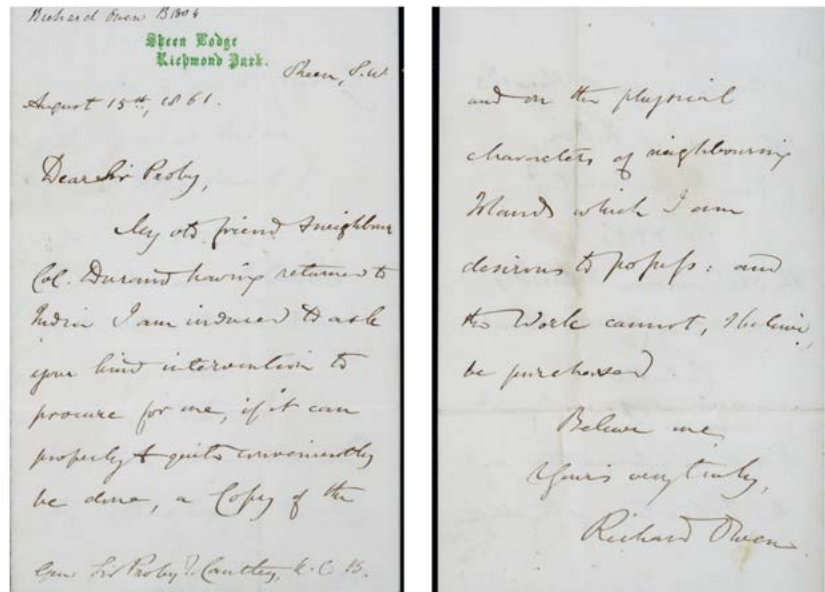 Richard Owen B 1804
Sheen Lodge
Richmond Park.
Sheen, S.W.
August 15th, 1861.
Dear Sir Proby,
My old friend & neighbour
Col. Durand having returned to
India I am induced to ask
your kind intervention to
procure for me, if it can
properly & quite conveniently
be done, a Copy of the
Gen. Sir Proby T. Cautley, K.C.B.
and on the physical
characters of neighbouring
Islands which I am
desirous to possess: and
the Work cannot, I believe,
be purchased
Believe me,
Yours very truly,
Richard Owen